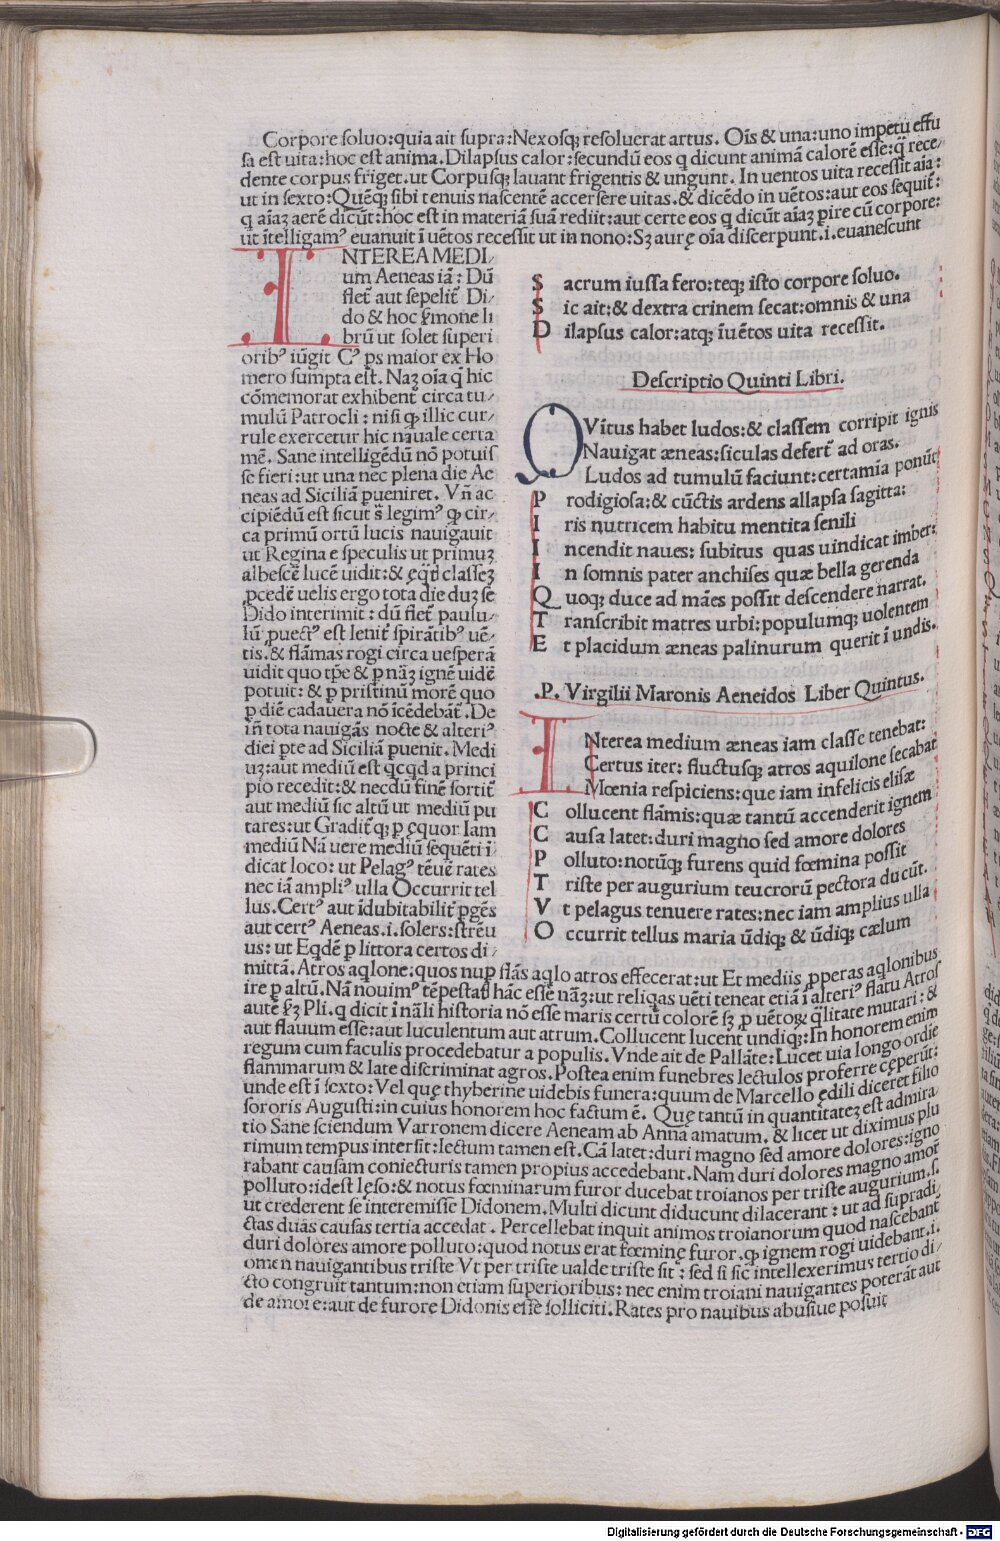 Corpore soluo:quia ait supra:Nexosqꝫ resoluerat artus. Oīs & una:uno impetu effu
sa est uita:hoc est anima. Dilapsus calor:secundū eos q dicunt animā calorē esse:q̄ rece/
dente corpus friget.ut Corpusqꝫ lauant frigentis & ungunt. In uentos uita recessit aīa:
ut in sexto:Quēqꝫ sibi tenuis nascentē accersere uitas.& dicēdo in uētos:aut eos sequit̄:
q aīaꝫ aerē dicūt:hoc est in materiā suā rediit:aut certe eos q dicūt aīaꝫ ꝑire cū corpore:
ut ītelligamꝰ euanuit ī uētos recessit ut in nono:Sꝫ aurę oīa discerpunt.i.euanescunt
INTEREA MEDI/
um Aeneas iā: Dū
flet̄ aut sepelit̄ Di/
do & hoc ſ̄mone li
brū ut solet superi
oribꝰ iūgit Cꝰ ꝑs maior ex Ho
mero sumpta est. Naꝫ oīa q̄ hic
cōmemorat exhibent̄ circa tu/
mulū Patrocli: nisi ꝙ illic cur/
rule exercetur hic nauale certa
mē. Sane intelligēdū nō potuis
se fieri:ut una nec plena die Ae
neas ad Siciliā ꝑueniret. Vn̄ ac
cipiēdū est sicut s̄ legimꝰ ꝙ cir/
ca primū ortū lucis nauigauit
ut Regina e speculis ut primuꝫ
albescē lucē uidit:& ęq̄ꝑ classeꝫ
ꝓcedē uelis ergo tota die duꝫ se
Dido interimit: dū flet̄ paulu/
lū ꝓuectꝰ est lenit̄ spirātibꝰ uē/
tis.& flāmas rogi circa uesperā
uidit quo tp̄e & ꝑ nāꝫ ignē uidē
potuit: & ꝑ pristinū morē quo
ꝑ diē cadauera nō īcēdebāt̄. De
in̄ tota nauigās nocte & alteriꝰ
diei ꝑte ad Siciliā ꝑuenit. Medi
uꝫ:aut mediū est qcqd a princi
pio recedit:& necdū finē sortit̄
aut mediū sic altū ut mediū pu
tares:ut Gradit̄qꝫ ꝑ ęquor Iam
mediū Nā uere mediū sequēti ī
dicat loco: ut Pelagꝰ tēuē rates
nec iā ampliꝰ ulla Occurrit tel
lus. Certꝰ aut īdubitabilit̄ ꝑgēs
aut certꝰ Aeneas.i.solers:strēu
us: ut Eqdē ꝑ littora certos di/
mittā. Atros aqlone:quos nuꝑ flās aqlo atros effecerat:ut Et mediis ꝓperas aqlonibus
ire ꝑ altū. Nā nouimꝰ tēpestatē hāc esse nāꝫ:ut religas uēti teneat etiā ī alteriꝰ flatu Atros
autē ſ̄ꝫ Pli.q dicit ī nāli historia nō esse maris certū colorē sꝫ ꝓ uētoꝝ q̄litate mutari: &
aut flauum esse:aut luculentum aut atrum. Collucent lucent undiqꝫ:In honorem enim
regum cum faculis procedebatur a populis. Vnde ait de Pallāte:Lucet uia longo ordie
flammarum & late discriminat agros. Postea enim funebres lectulos proferre cęperūt:
unde est ī sexto:Vel quę thyberine uidebis funera:quum de Marcello ędili diceret filio
sororis Augusti:in cuius honorem hoc factum ē. Quę tantū in quantitateꝫ est admira
tio Sane sciendum Varronem dicere Aeneam ab Anna amatum. & licet ut diximus plu
rimum tempus intersit:lectum tamen est. Cā latet:duri magno sed amore dolores:igno
rabant causam coniecturis tamen propius accedebant. Nam duri dolores magno amor̄
polluto:idest lęso:& notus fœminarum furor ducebat troianos per triste augurium.s.
ut crederent se interemisse Didonem. Multi dicunt diducunt dilacerant: ut ad supradi/
ctas duas causas tertia accedat. Percellebat inquit animos troianorum quod nascebant̄
duri dolores amore polluto:quod notus erat fœminę furor.ꝙ ignem rogi uidebant.i.
omen nauigantibus triste Vt per triste ualde triste sit: sed si sic intellexerimus tertio di/
cto congruit tantum:non etiam superioribus: nec enim troiani nauigantes poterāt aut
de amore:aut de furore Didonis esse solliciti. Rates pro nauibus abusiue posuit
S acrum iussa fero:teqꝫ isto corpore soluo.
S ic ait:& dextra crinem secat:omnis & una
D ilapsus calor:atqꝫ īuētos uita recessit.
Descriptio Quinti Libri.
QVītus habet ludos:& classem corripit ignis
Nauigat æneas:siculas defert̄ ad oras.
Ludos ad tumulū faciunt:certamīa ponūt
P rodigiosa:& cūctis ardens allapsa sagitta:
I ris nutricem habitu mentita senili
I ncendit naues: subitus quas uindicat imber:
I n somnis pater anchises quæ bella gerenda
Q uoqꝫ duce ad māes possit descendere narrat.
T ranscribit matres urbi:populumqꝫ uolentem
E t placidum æneas palinurum querit ī undis.
.P. Virgilii Maronis Aeneidos Liber Quintus.
INterea medium æneas iam classe tenebat:
Certus iter: fluctusqꝫ atros aquilone secabat
Mœnia respiciens:que iam infelicis elisæ
C ollucent flāmis:quæ tantū accenderit ignem
C ausa latet:duri magno sed amore dolores
P olluto:notūqꝫ furens quid fœmina possit
T riste per augurium teucrorū pectora ducūt.
V t pelagus tenuere rates:nec iam amplius ulla
O ccurrit tellus maria ūdiqꝫ & ūdiqꝫ cælum
Digitalisierung gefördert durch die Deutsche Forschungsgemeinschaft - DFG